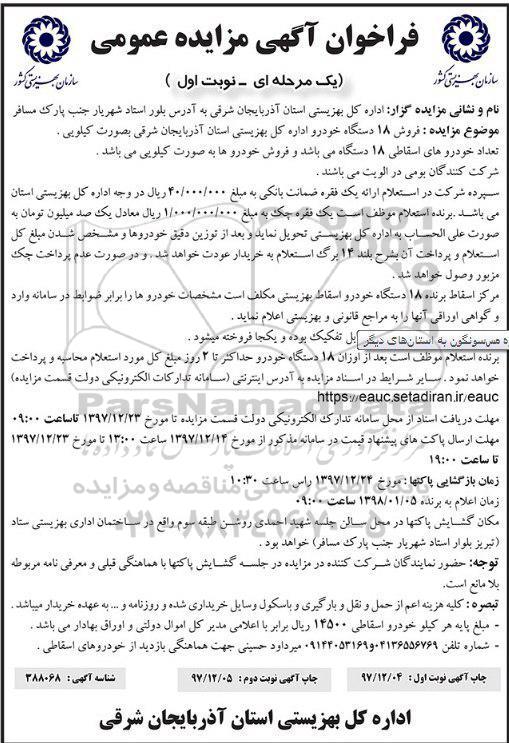 فراخوان آگهی مزایده عمومی
(یک مرحله ای - نوبت اول )
سازمان بهزیستی کشور
سازمان بهزیستی کشور
نام و نشانی مزایده گزار: اداره کل بهزیستی استان آذربایجان شرقی به آدرس بلور استاد شهریار جنب پارک مسافر
موضوع مزایده : فروش ۱۸ دستگاه خودرو اداره کل بهزیستی استان آذربایجان شرقی بصورت کیلویی .
تعداد خودرو های اسقاطی ۱۸ دستگاه می باشد و فروش خودرو ها به صورت کیلویی می باشد .
شرکت کنندگان بومی در الویت می باشند .
سپرده شرکت در استعلام ارائه یک فقره ضمانت بانکی به مبلغ ۴۰/۰۰۰/۰۰۰ ریال در وجه اداره کل بهزیستی استان
می باشد .برنده استعلام موظف است یک فقره چک به مبلغ ۱/۰۰۰/۰۰۰/۰۰۰ ریال معادل یک صد میلیون تومان به
صورت علی الحساب به اداره کل بهزیستی تحویل نماید و بعد از توزین دقیق خودروها و مشخص شدن مبلغ کل
استعلام و پرداخت آن بشرح بلند ۱۴ برگ استعلام به خریدار عودت خواهد شد . و در صورت عدم پرداخت چک
مزبور وصول خواهد شد .
مرکز اسقاط برنده ۱۸ دستگاه خودرو اسقاط بهزیستی مکلف است مشخصات خودرو ها را برابر ضوابط در سامانه وارد
و گواهی اوراقی آنها را به مراجع قانونی و بهزیستی اعلام نماید .
ه مس‌سونگون به استان‌های دیگر بل تفکیک بوده و یکجا فروخته میشود .
برنده استعلام موظف است بعد از اوزان ۱۸ دستگاه خودرو حداکثر تا ۲ روز مبلغ کل مورد استعلام محاسبه و پرداخت
خواهد نمود . سایر شرایط در اسناد مزایده به آدرس اینترنتی (سامانه تدارکات الکترونیکی دولت قسمت مزایده)
https://eauc.setadiran.ir/eauc
مهلت دریافت اسناد از محل سامانه تدارک الکترونیکی دولت قسمت مزایده تا مورخ ۱۳۹۷/۱۲/۲۳ تاساعت ۰۹:۰۰
مهلت ارسال پاکت های پیشنهاد قیمت در سامانه مذکور از مورخ ۱۳۹۷/۱۲/۱۴ ساعت ۱۳:۰۰ تا مورخ ۱۳۹۷/۱۲/۲۳
تا ساعت ۱۹:۰۰
زمان بازگشایی پاکتها : مورخ ۱۳۹۷/۱۲/۲۴ راس ساعت ۱۰:۳۰
زمان اعلام به برنده ۱۳۹۸/۰۱/۰۵ ساعت ۰۹:۰۰
مکان گشایش پاکتها در محل سالن جلسه شهید احمدی روشن طبقه سوم واقع در ساختمان اداری بهزیستی ستاد
(تبریز بلوار استاد شهریار جنب پارک مسافر) خواهد بود .
توجه: حضور نمایندگان شرکت کننده در مزایده در جلسه گشایش پاکتها با هماهنگی قبلی و معرفی نامه مربوطه
بلا مانع است.
تبصره : کلیه هزینه اعم از حمل و نقل و بارگیری و باسکول وسایل خریداری شده و روزنامه و ... به عهده خریدار میباشد .
- مبلغ پایه هر کیلو خودرو اسقاطی ۱۴۵۰۰ ریال برابر با اعلامی مدیر کل اموال دولتی و اوراق بهادار می باشد .
- شماره تلفن ۰۴۱۳۶۵۵۶۷۶۹و۰۹۱۴۴۰۵۳۱۶۹ میرداود حسینی جهت هماهنگی بازدید از خودروهای اسقاطی .
چاپ آگهی نوبت اول : ۹۷/۱۲/۰۴
چاپ آگهی نوبت دوم : ۹۷/۱۲/۰۵
شناسه آگهی : ۳۸۸۰۶۸
اداره کل بهزیستی استان آذربایجان شرقی
ParsNamadData
۰۲۱-۸۸۳۴۹۶۷۰-۵